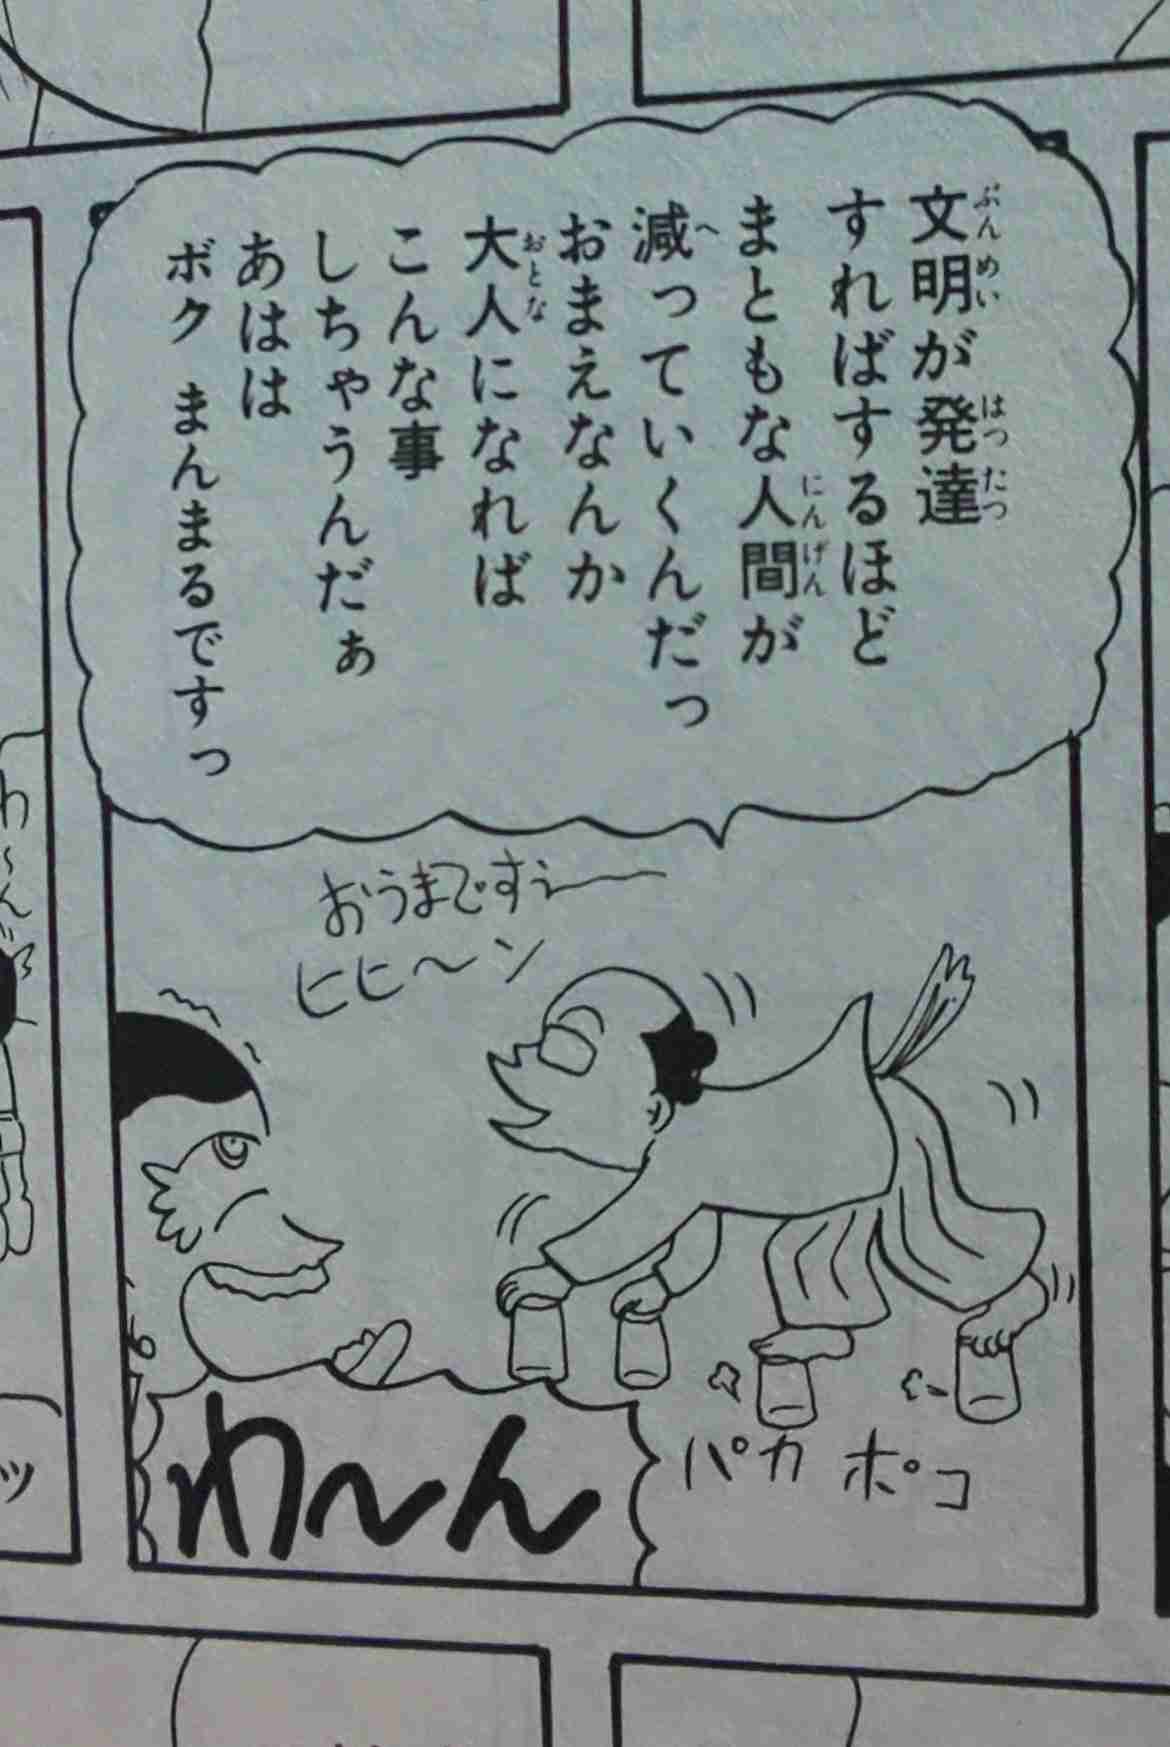 文明が発達
すればするほど
まともな人間が
減っていくんだっ
おまえなんか
大人になれば
こんな事
しちゃうんだぁ
あはは
ボク まんまるですっ
おうまですぅー
ヒヒ〜ン
パカ ポコ
わ〜ん
わ〜ん
ッ